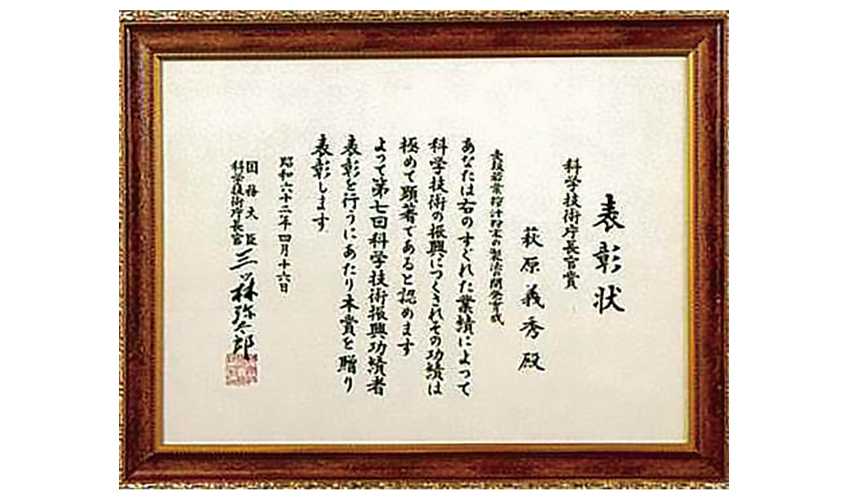 表彰状
科学技術庁長官賞
萩原義秀殿
麦緑若葉搾汁粉末の製法の開発育成
あなたは右のすぐれた業績によって
科学技術の振興につくされその功績は
極めて顕著であると認めます
よって第七回科学技術振興功績者
表彰を行うにあたり本賞を贈り
表彰します
昭和六十二年四月十六日
国務大臣
科学技術庁長官 三ッ林弥太郎